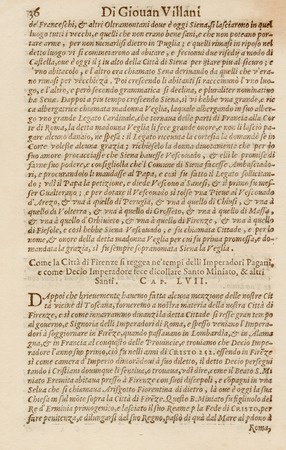 36 Di Giouan Villani
de' Franceschi, & altri Oltramontani doue è oggi Siena, si lasciarono in quel
luogo tutti i vecchi, e quelli che non erano bene sani, e che non poteano por-
tare arme, per non menarlisi dietro in Puglia; e quelli rimasi in riposo nel
detto luogo vi si cominciarono ad abitare, e feciono
due
Castello, oue oggi è il piu alto della Città di Siena per istare piu di sicuro; e
l'uno abitacolo, e l'altro era chiamato Sena deriuando da quelli che v'era-
no rimasi per vecchiezza. Poi crescendo li abitanti si raccomunò l'uno luo-
go, e l'altro, e però secondo grammatica si declina, e pluraliter nominatiuo
hæ Senæ. Et dopo piu tempo crescendo Siena, si vi hebbe vna grande, e ric-
ca albergatrice chiamata madonna Veglia, laquale albergando in suo alber-
go vno grande Legato Cardinale, che tornaua delle parti di Francia alla Cor-
te di Roma, la detta madonna Veglia li fece grande onore, e non li lasciò pa-
gare alcuno danaio, nè spesa; il Legato riceuuta la cortesia la domandò se in
Corte volesse alcuna grazia; richieselo la donna diuotamente che per lo
suo amore procacciasse che Siena hauesse Vescouado, & elli le promise di
farne suo podere, e consigliolla che'l Comune di Siena facesse Ambasciado-
ri, e procurandolo li mandasse al Papa, e così fu fatto il Legato sollicitan-
do; vdì il Papa la petizione, e diede Vescouo a' Sanesi, & il primo fu mes-
ser Gualterano; e per dotare il Vescouado si tolse vna Pieue al Vescouado
d'Arezo, & vna a quello di Perugia, & vna a quello di Chiusi, & vna a
quello di Volterra, & vna a quello di Grosseto, & vna a quello di Massa,
& vna a quello d'Orbiuieto, & vna a quello di Firenze, & vna a quello
di Fiesole, e così hebbe Siena Vescouado, e fu chiamata Città, e per lo no-
me, & onore della detta madonna Veglia per cui fu prima promossa, e do-
mandata la grazia, sì fu sempre sopranomata Siena la Veglia.
Come la Città di Firenze si reggea ne' tempi delli Imperadori Pagani,
e come Decio Imperadore fece dicollare Santo Miniato, & altri
Santi. CAP. LVII.
DAppoi che brieuemente hauemo fatta alcuna menzione delle nostre Cit
tà vicine di Toscana, torneremo a nostra materia della nostra Città di
Firenze, e sì come innarrammo dinanzi la detta Cittade si resse gran tempo
al gouerno, e Signoria delli Imperadori di Roma, e spesso veniano l'Impera-
dori a soggiornare in Firenze, quando passauano in Lombardia, & in Alamag
na, & in Francia al conquisto delle Prouincie; e trouiamo che Decio Impe-
radore l'anno suo primo, ciò fu nelli anni di CRISTO 252. essendo in Firenze
sì come camera d'Imperio dimorandoui a suo diletto, il detto Decio perseguI-
tando i Cristiani dounque li sentiuo, o trouaua, vdì dire, come il Beato S. Mi
niato Eremita abitaua presso a Firenze con suoi discepoli, e compagni in vna
Selua che si chiamaua Arisgotto Fiorentina di dietro, là oue è oggi la sua
Chiesa in sul monte sopra la Città di Firenze. Questo B. Miniato fu figliuolo del
Re d'Erminia primogenito, e lasciato il suo Reame p la Fede di CRISTO, per
fare penitenza, e dilungarsi dal suo Regno, passò di quà dal Mare al pdono à
Roma,